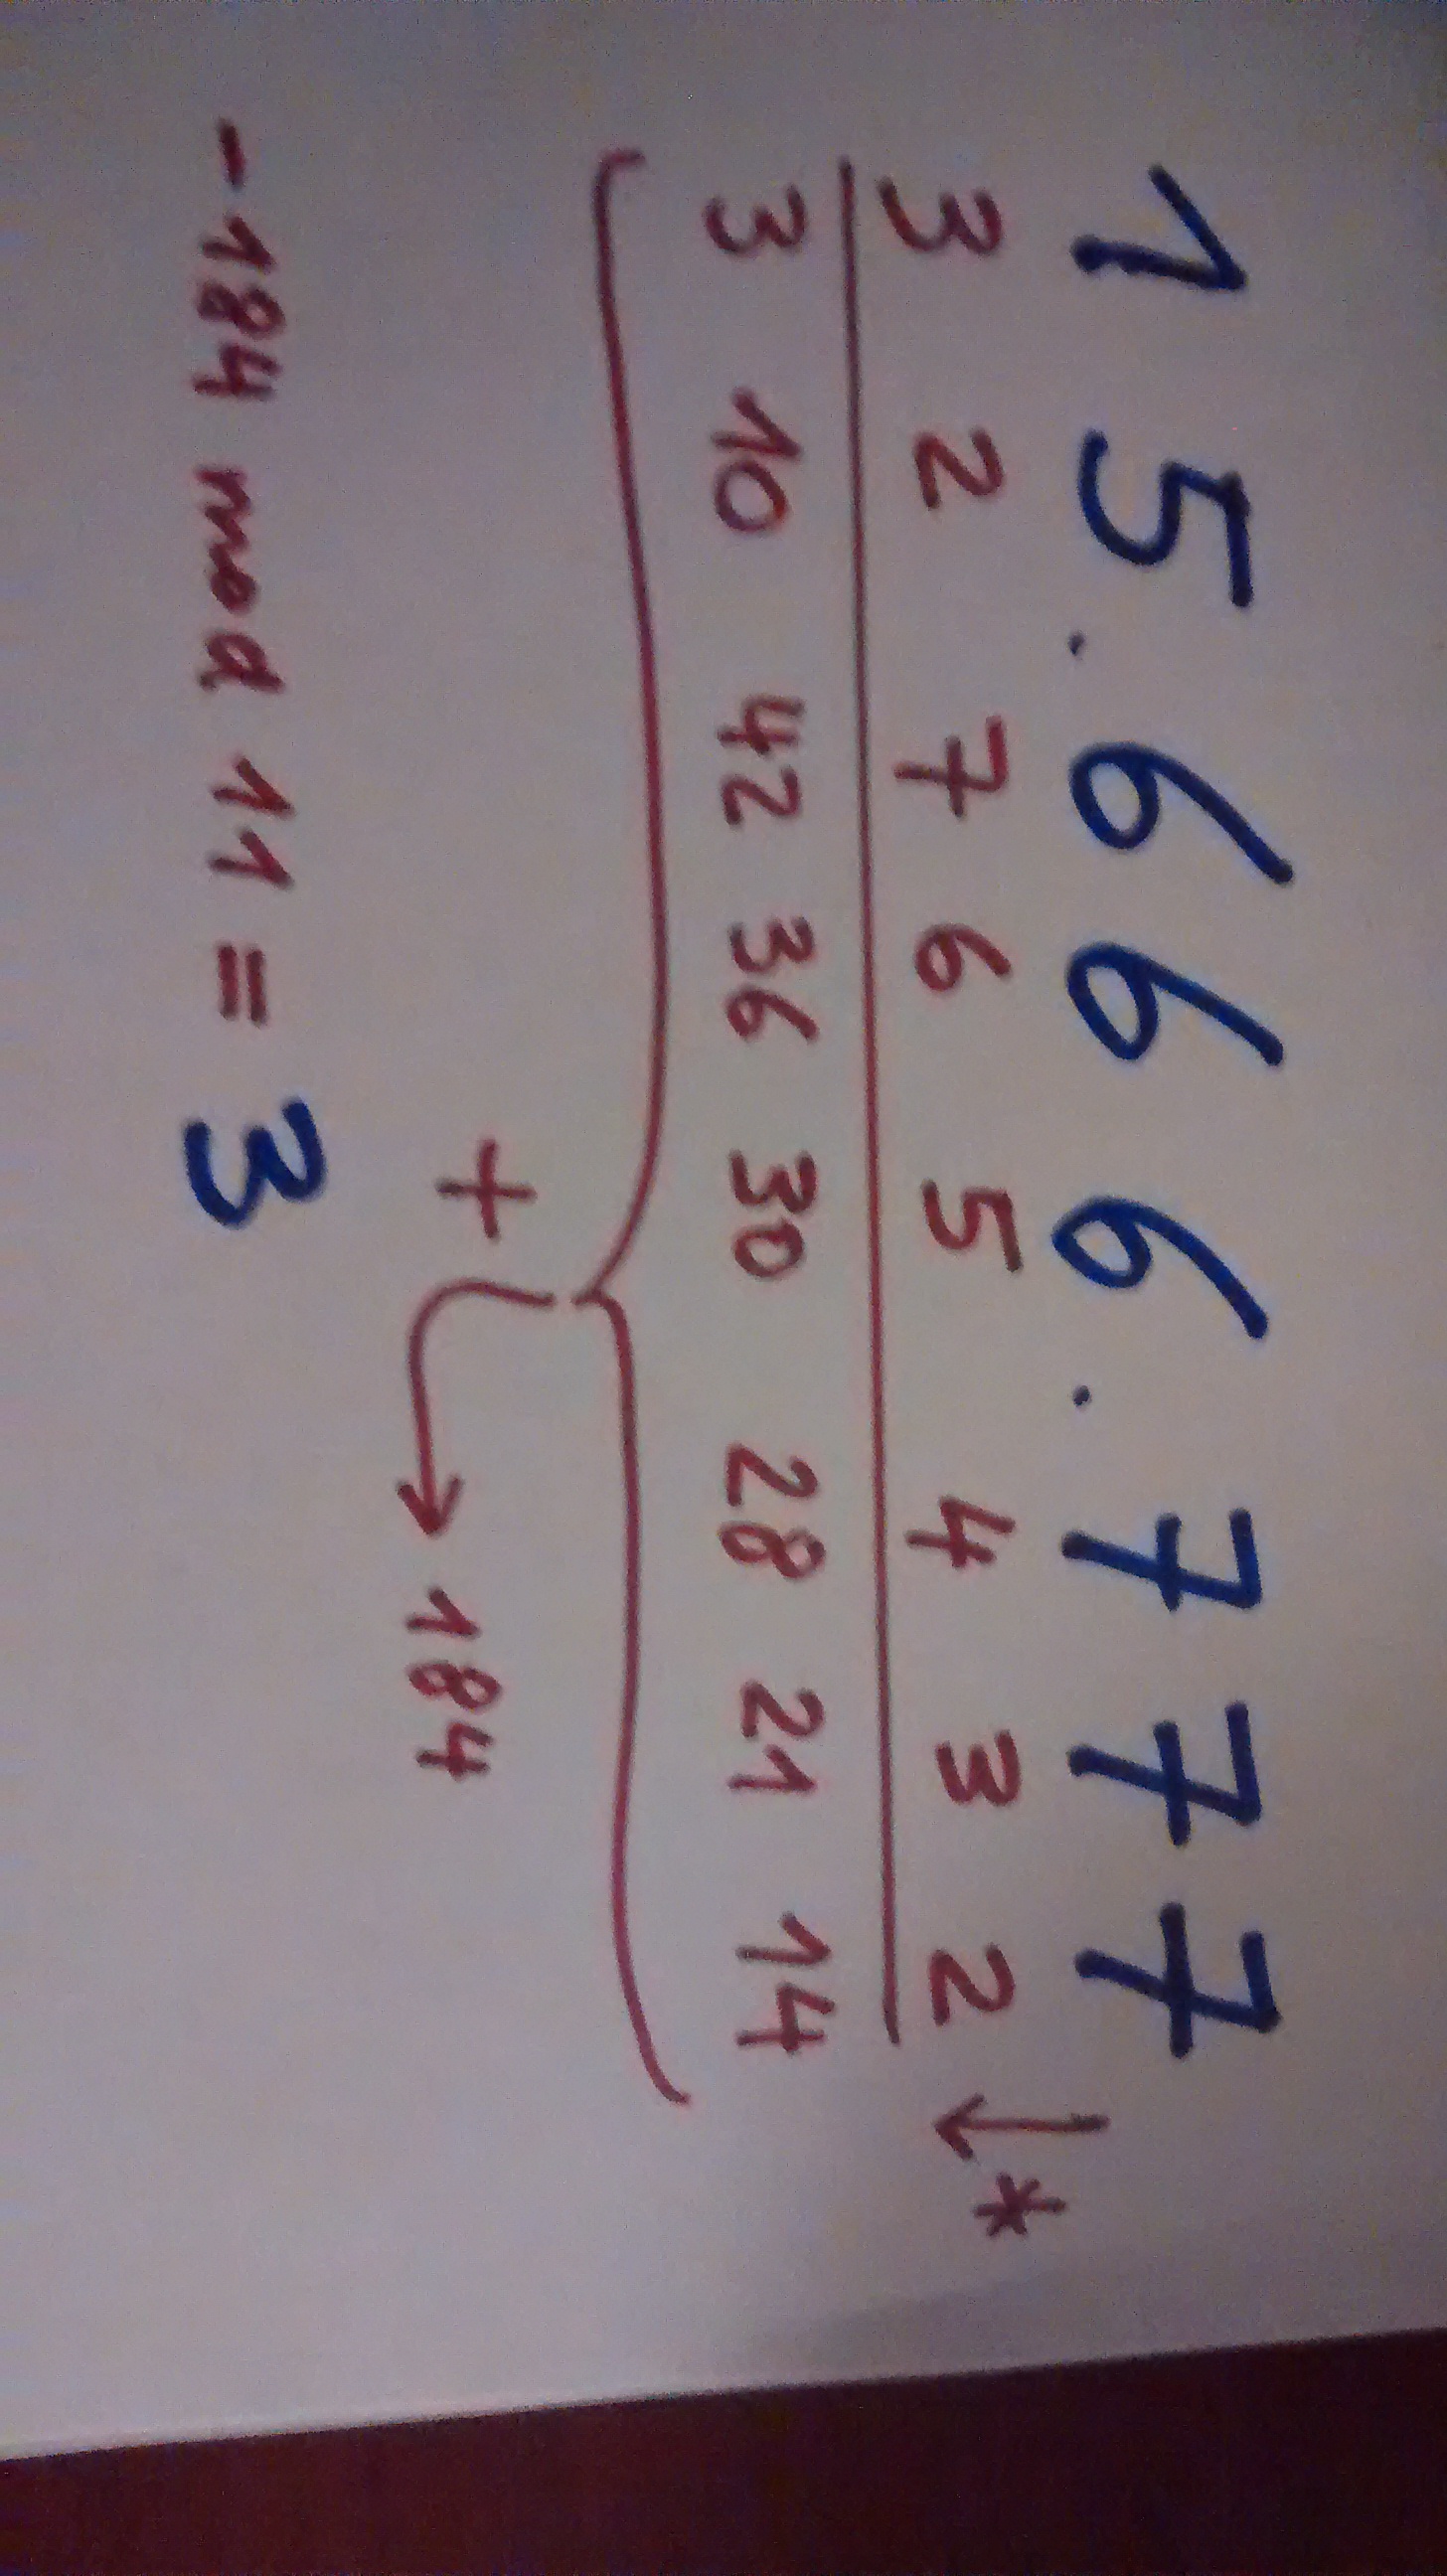 15.666.777
3 2 7 6 5 4 3 2 ↓ *
3 10 42 36 30 28 21 14
+ → 184
-184 mod 11 = 3